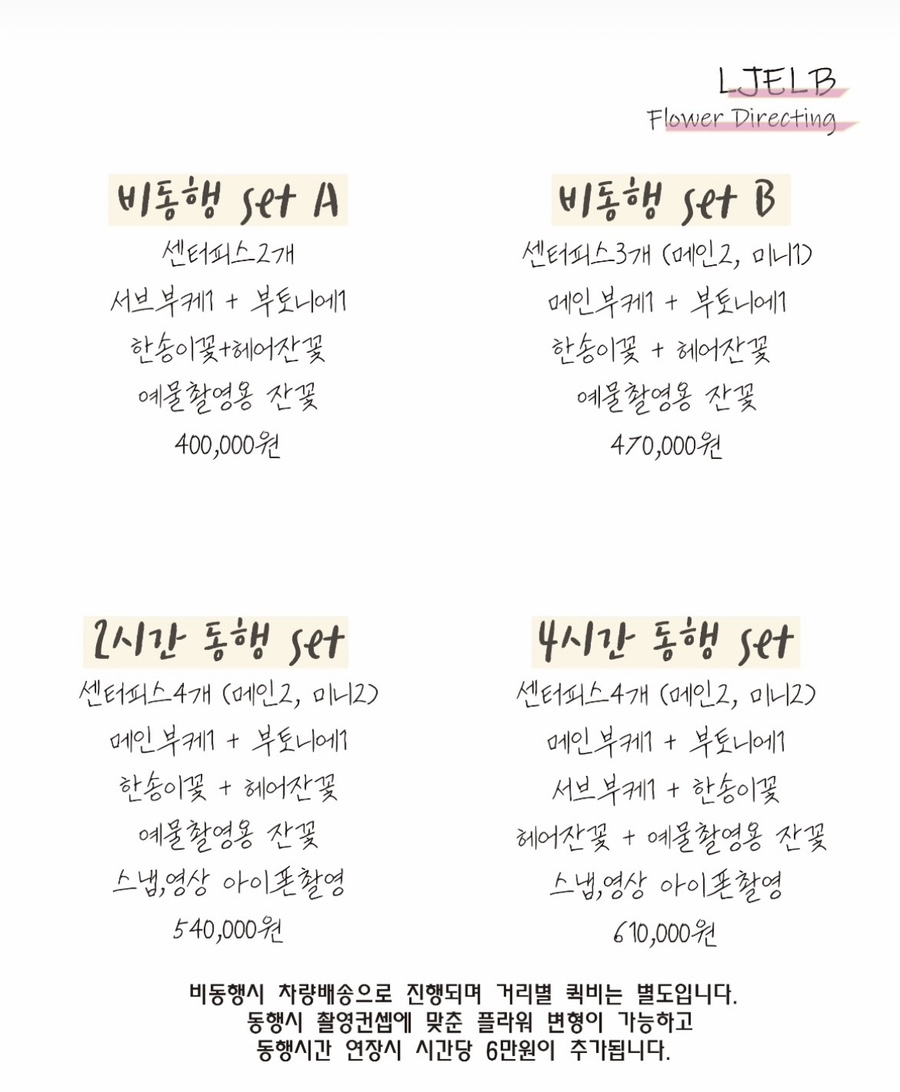 LJELB
Flower Directing
비동행 set A
센터피스2개
서브부케1 + 부토니에1
한송이꽃+헤어잔꽃
예물촬영용 잔꽃
400,000원
비동행 set B
센터피스3개 (메인2, 미니1)
메인부케1 + 부토니에1
한송이꽃 + 헤어잔꽃
예물촬영용 잔꽃
470,000원
2시간 동행 set
센터피스4개 (메인2, 미니2)
메인부케1 + 부토니에1
한송이꽃 + 헤어잔꽃
예물촬영용 잔꽃
스냅,영상 아이폰촬영
540,000원
4시간 동행 set
센터피스4개 (메인2, 미니2)
메인부케1 + 부토니에1
서브부케1 + 한송이꽃
헤어잔꽃 + 예물촬영용 잔꽃
스냅,영상 아이폰촬영
610,000원
비동행시 차량배송으로 진행되며 거리별 퀵비는 별도입니다.
동행시 촬영컨셉에 맞춘 플라워 변형이 가능하고
동행시간 연장시 시간당 6만원이 추가됩니다.